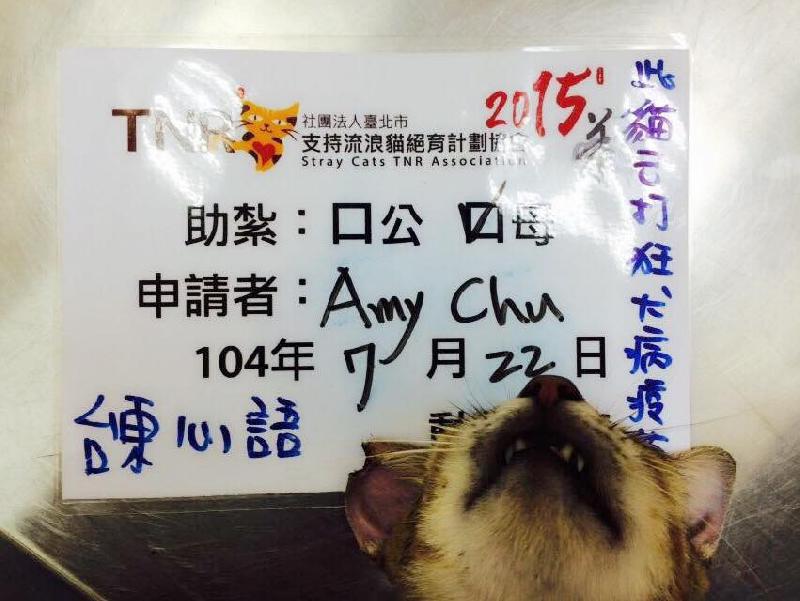 TNR
社團法人臺北市
支持流浪貓絕育計劃協會
Stray Cats TNR Association
2015
助紮：口公 口母
申請者：Amy Chu
104年 7月 22日
諫心語
此貓云打狂犬病疫